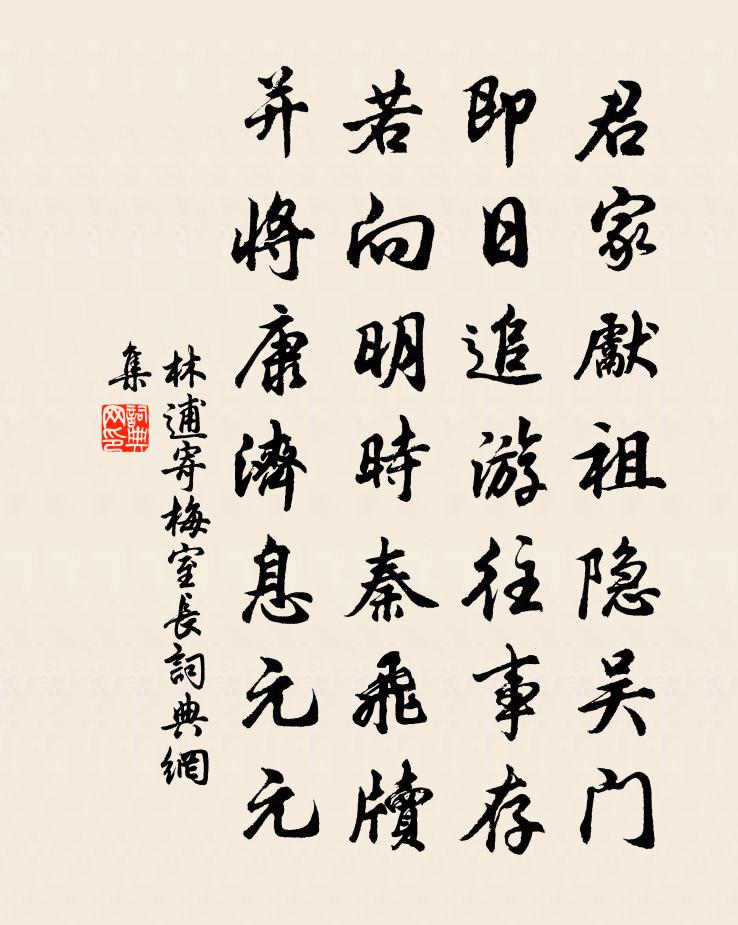 君家献祖隐吴门
即日追游往事存
若向明時秦飛牘
并将康濟息元元
林逋寄梅室長詞典網
集
詞典
网印